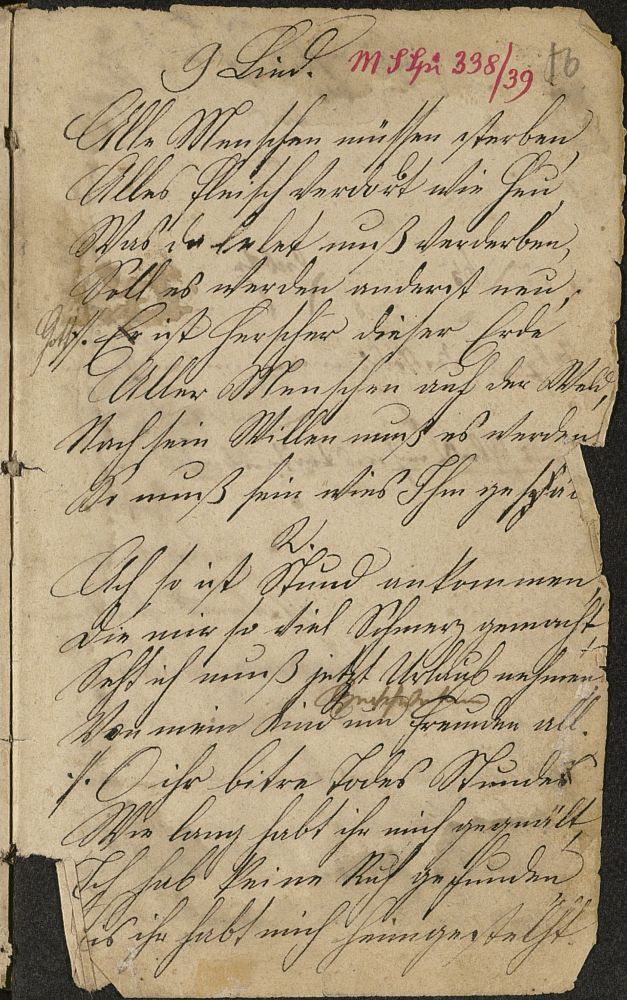 9 Lied. M S Spi 338/39 16
Alle Menschen müssen sterben
Alles Fleisch verdort wie Heu
Was da lebet muß verderben,
Soll es werden anderst neu,
Gott :/. Er ist Herscher dieser Erde
Aller Menschen auf der Weld,
Nach sein Willen muß es werden
So muß sein wies Ihm
2.
Ach so ist Stund ankommen,
Die mir so viel Schmerz gemacht,
Seht ich muß jetzt Urlaub nehmen
Von mein Kind und Freunden all.
:/. O ihr bitre Todes Stunden
Wie lang habt ihr mich gequält,
Ich hab keine Ruh gefunden
bis ihr habt mich heimgestelht.